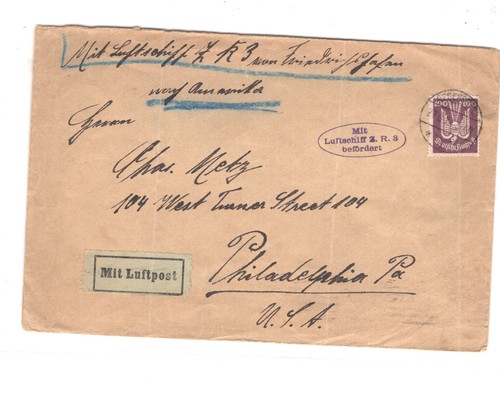 Mit Luftschiff Z R 3 von Friedrichshafen
nach Amerika
Herrn
Mit
Luftschiff Z. R. 3
befördert
Chas. Metz
104 West Turner Street 104
Mit Luftpost
Philadelphia Pa
U. S. A.